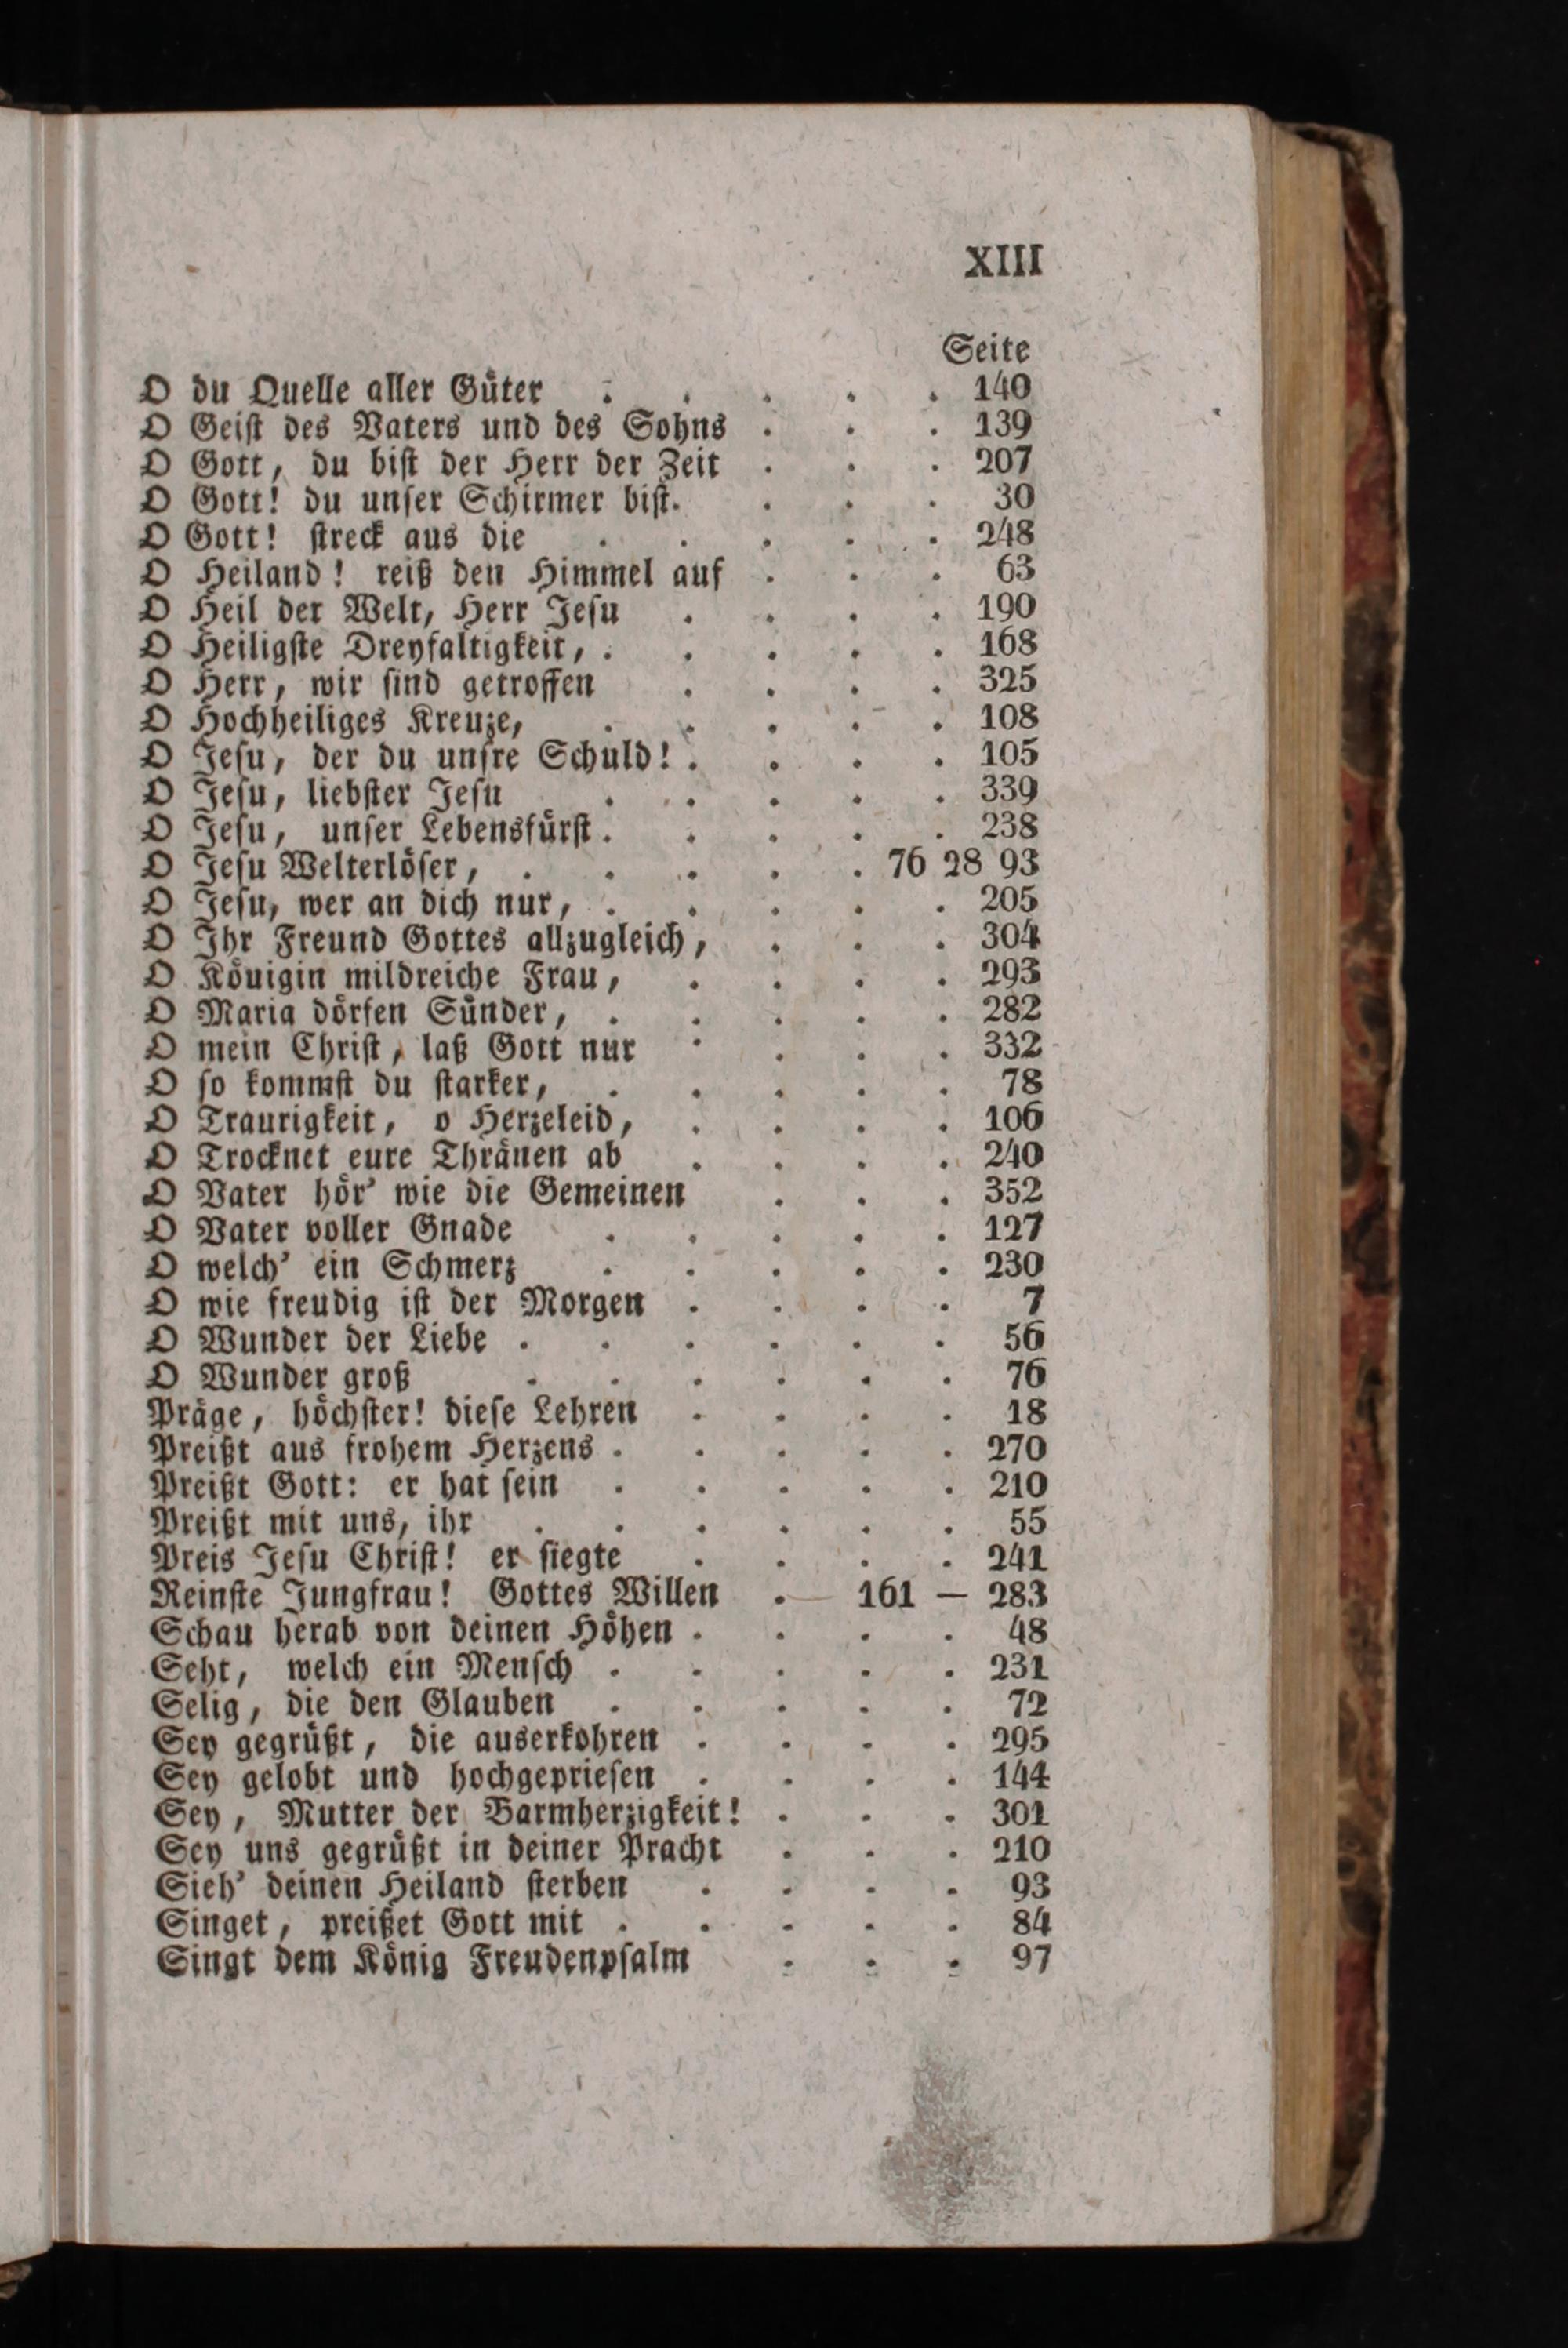 XIII
Seite
O du Quelle aller Güter . . . . . 140
O Geist des Vaters und des Sohns . . . 139
O Gott, du bist der Herr der Zeit . . . 207
O Gott! du unser Schirmer bist. . . . 30
O Gott! streck aus die . . . . . 248
O Heiland! reiß den Himmel auf . . . 63
O Heil der Welt, Herr Jesu . . . . 190
O Heiligste Dreyfaltigkeit, . . . . . 168
O Herr, wir sind getroffen . . . . 325
O Hochheiliges Kreuze, . . . . . 108
O Jesu, der du unsre Schuld! . . . . 105
O Jesu, liebster Jesu . . . . . 339
O Jesu, unser Lebensfürst . . . . . 238
O Jesu Welterlöser, . . . . . 76 28 93
O Jesu, wer an dich nur, . . . . . 205
O Ihr Freund Gottes allzugleich, . . . 304
O Köuigin mildreiche Frau, . . . . 293
O Maria dörfen Sünder, . . . . . 282
O mein Christ, laß Gott nur . . . . 332
O so kommst du starker, . . . . . 78
O Traurigkeit, o Herzeleid, . . . . 106
O Trocknet eure Thränen ab . . . . 240
O Vater hör' wie die Gemeinen . . . 352
O Vater voller Gnade . . . . . 127
O welch' ein Schmerz . . . . . 230
O wie freudig ist der Morgen . . . . 7
O Wunder der Liebe . . . . . . 56
O Wunder groß . . . . . . 76
Präge, höchster! diese Lehren . . . . 18
Preißt aus frohem Herzens . . . . . 270
Preißt Gott: er hat sein . . . . . 210
Preißt mit uns, ihr . . . . . . 55
Preis Jesu Christ! er siegte . . . . 241
Reinste Jungfrau! Gottes Willen . — 161 — 283
Schau herab von deinen Höhen . . . . 48
Seht, welch ein Mensch . . . . . 231
Selig, die den Glauben . . . . . 72
Sey gegrüßt, die auserkohren . . . . 295
Sey gelobt und hochgepriesen . . . . 144
Sey, Mutter der Barmherzigkeit! . . . 301
Sey uns gegrüßt in deiner Pracht . . . 210
Sieh' deinen Heiland sterben . . . . 93
Singet, preißet Gott mit . . . . . 84
Singt dem König Freudenpsalm . . . 97